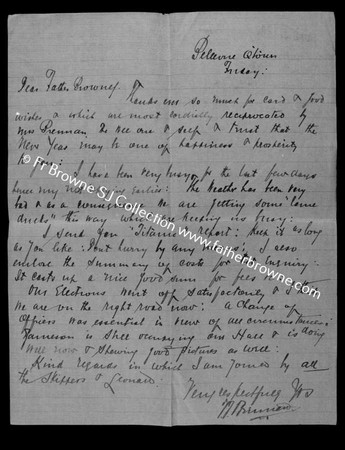 Bellevue Q'town
Friday:
Dear Father Browne,
Thanks ever so much for card & good
wishes & which are most cordially reciprocated by
Mrs Brennan, & we one & self & trust that the
New Year may be one of happiness & prosperity
I have been very busy for the last few days
hence my not writing earlier: the weather has been very
bad & as a consequence we are getting some "lame
ducks" this way which are keeping us busy:
I send you "Titanic" Report: keep it as long
as you like: Don't hurry by any means; I also
enclose the summary of costs for the Inquiry:
It costs up a nice good sum for fees &c
Our Elections went off satisfactorily & I
we are on the right road now: a change of
affairs was essential in view of all circumstances:
is still occupying our Hall & is doing
well now & showing good pictures as well:
Kind regards in which I am joined by all
the Skippers & Leonard.
Very respectfully Yrs
Brennan
© Fr Browne SJ Collection
www.fatherbrowne.com